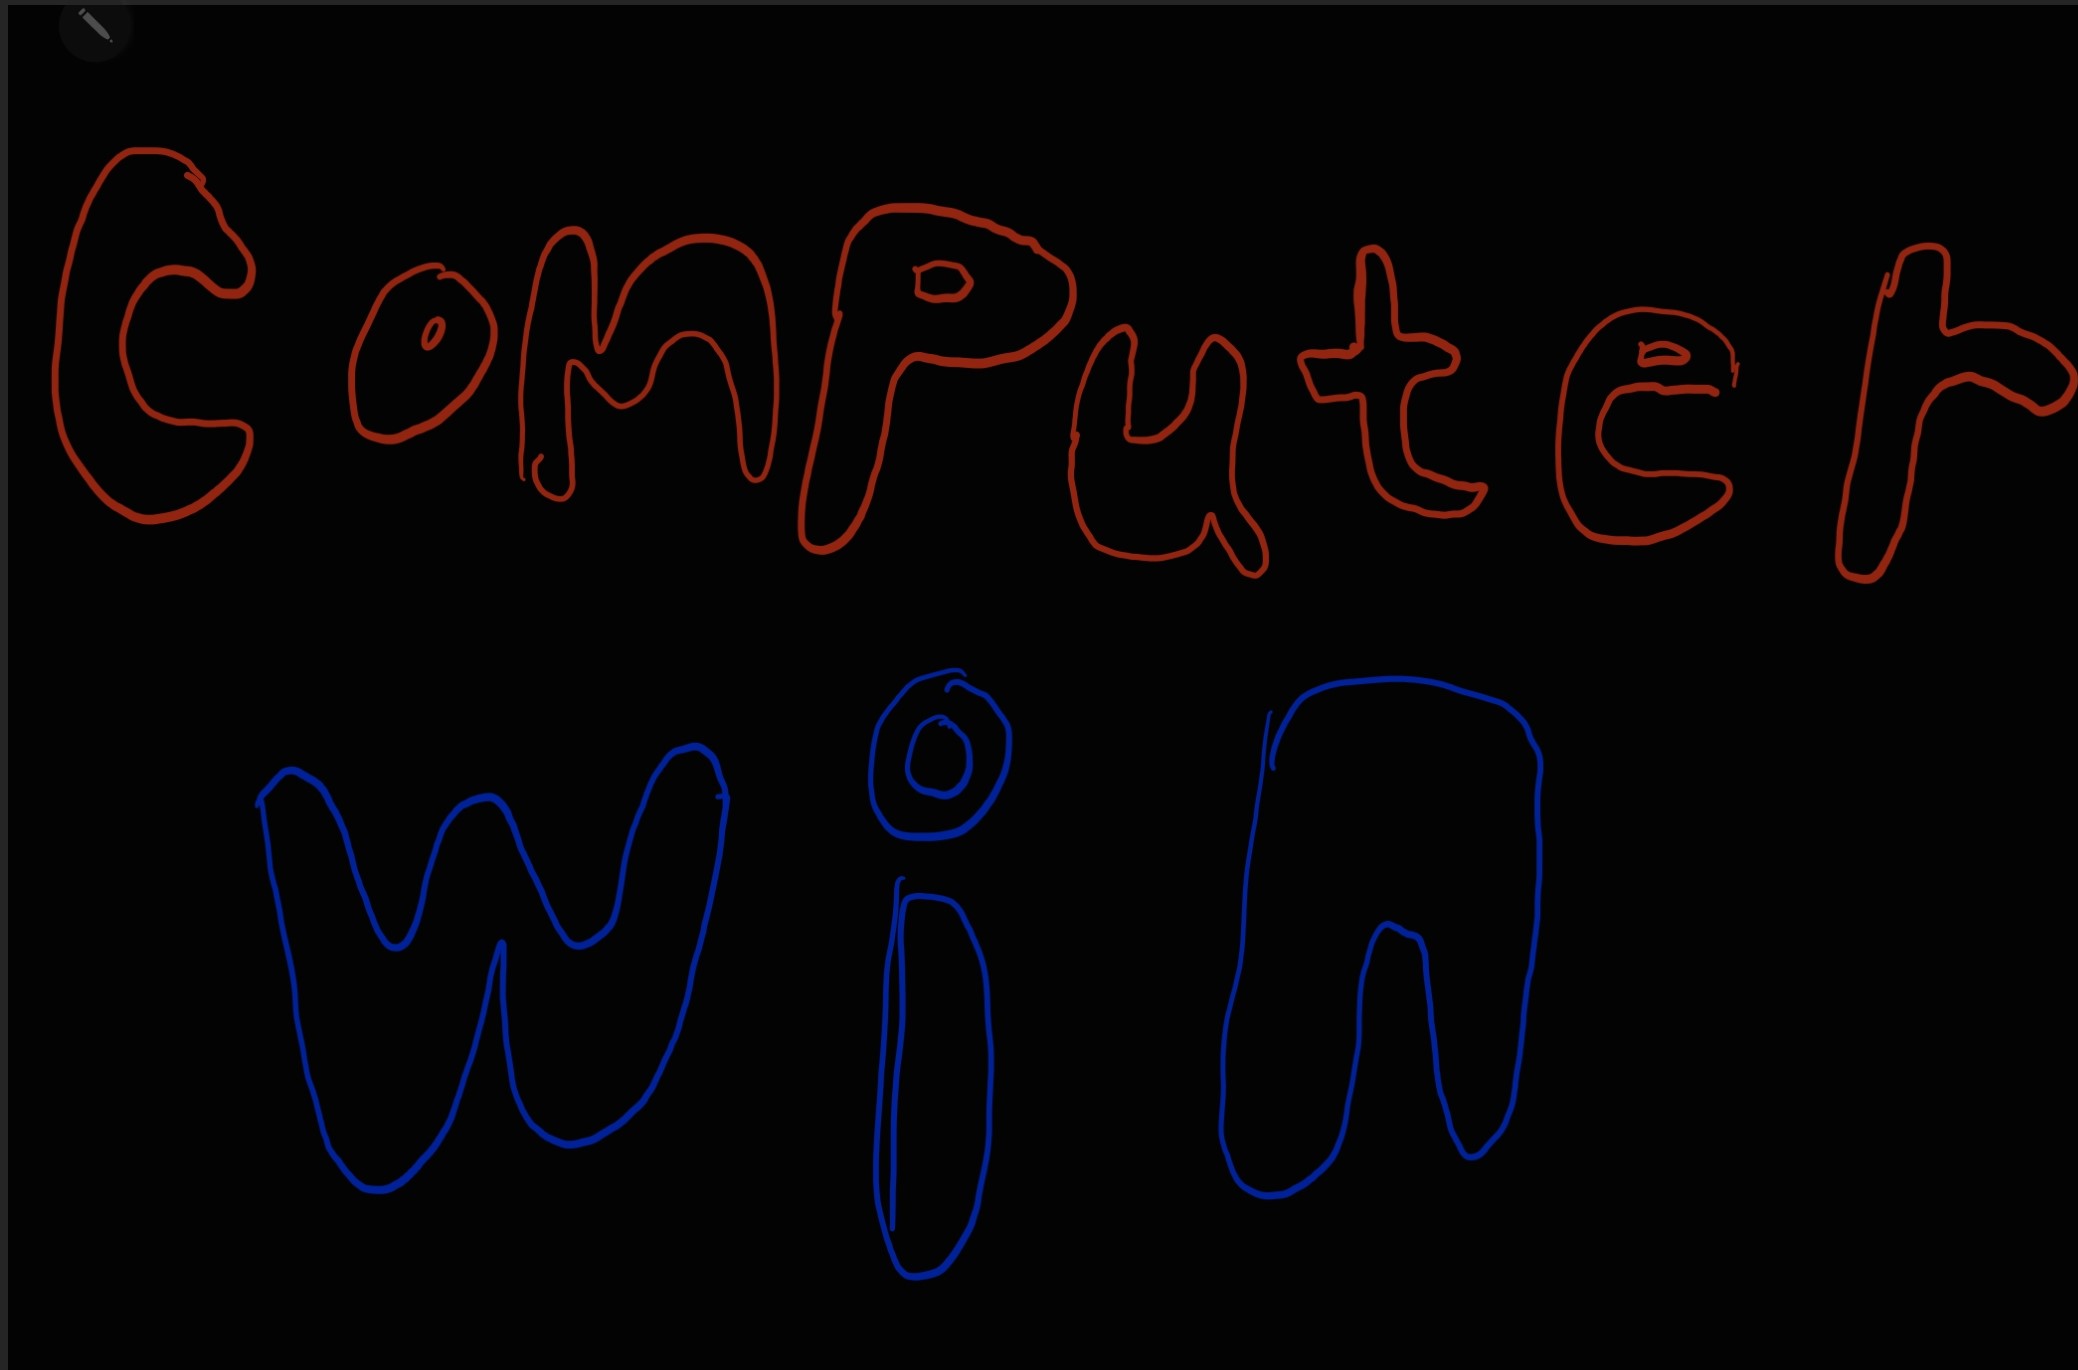 Computer
win